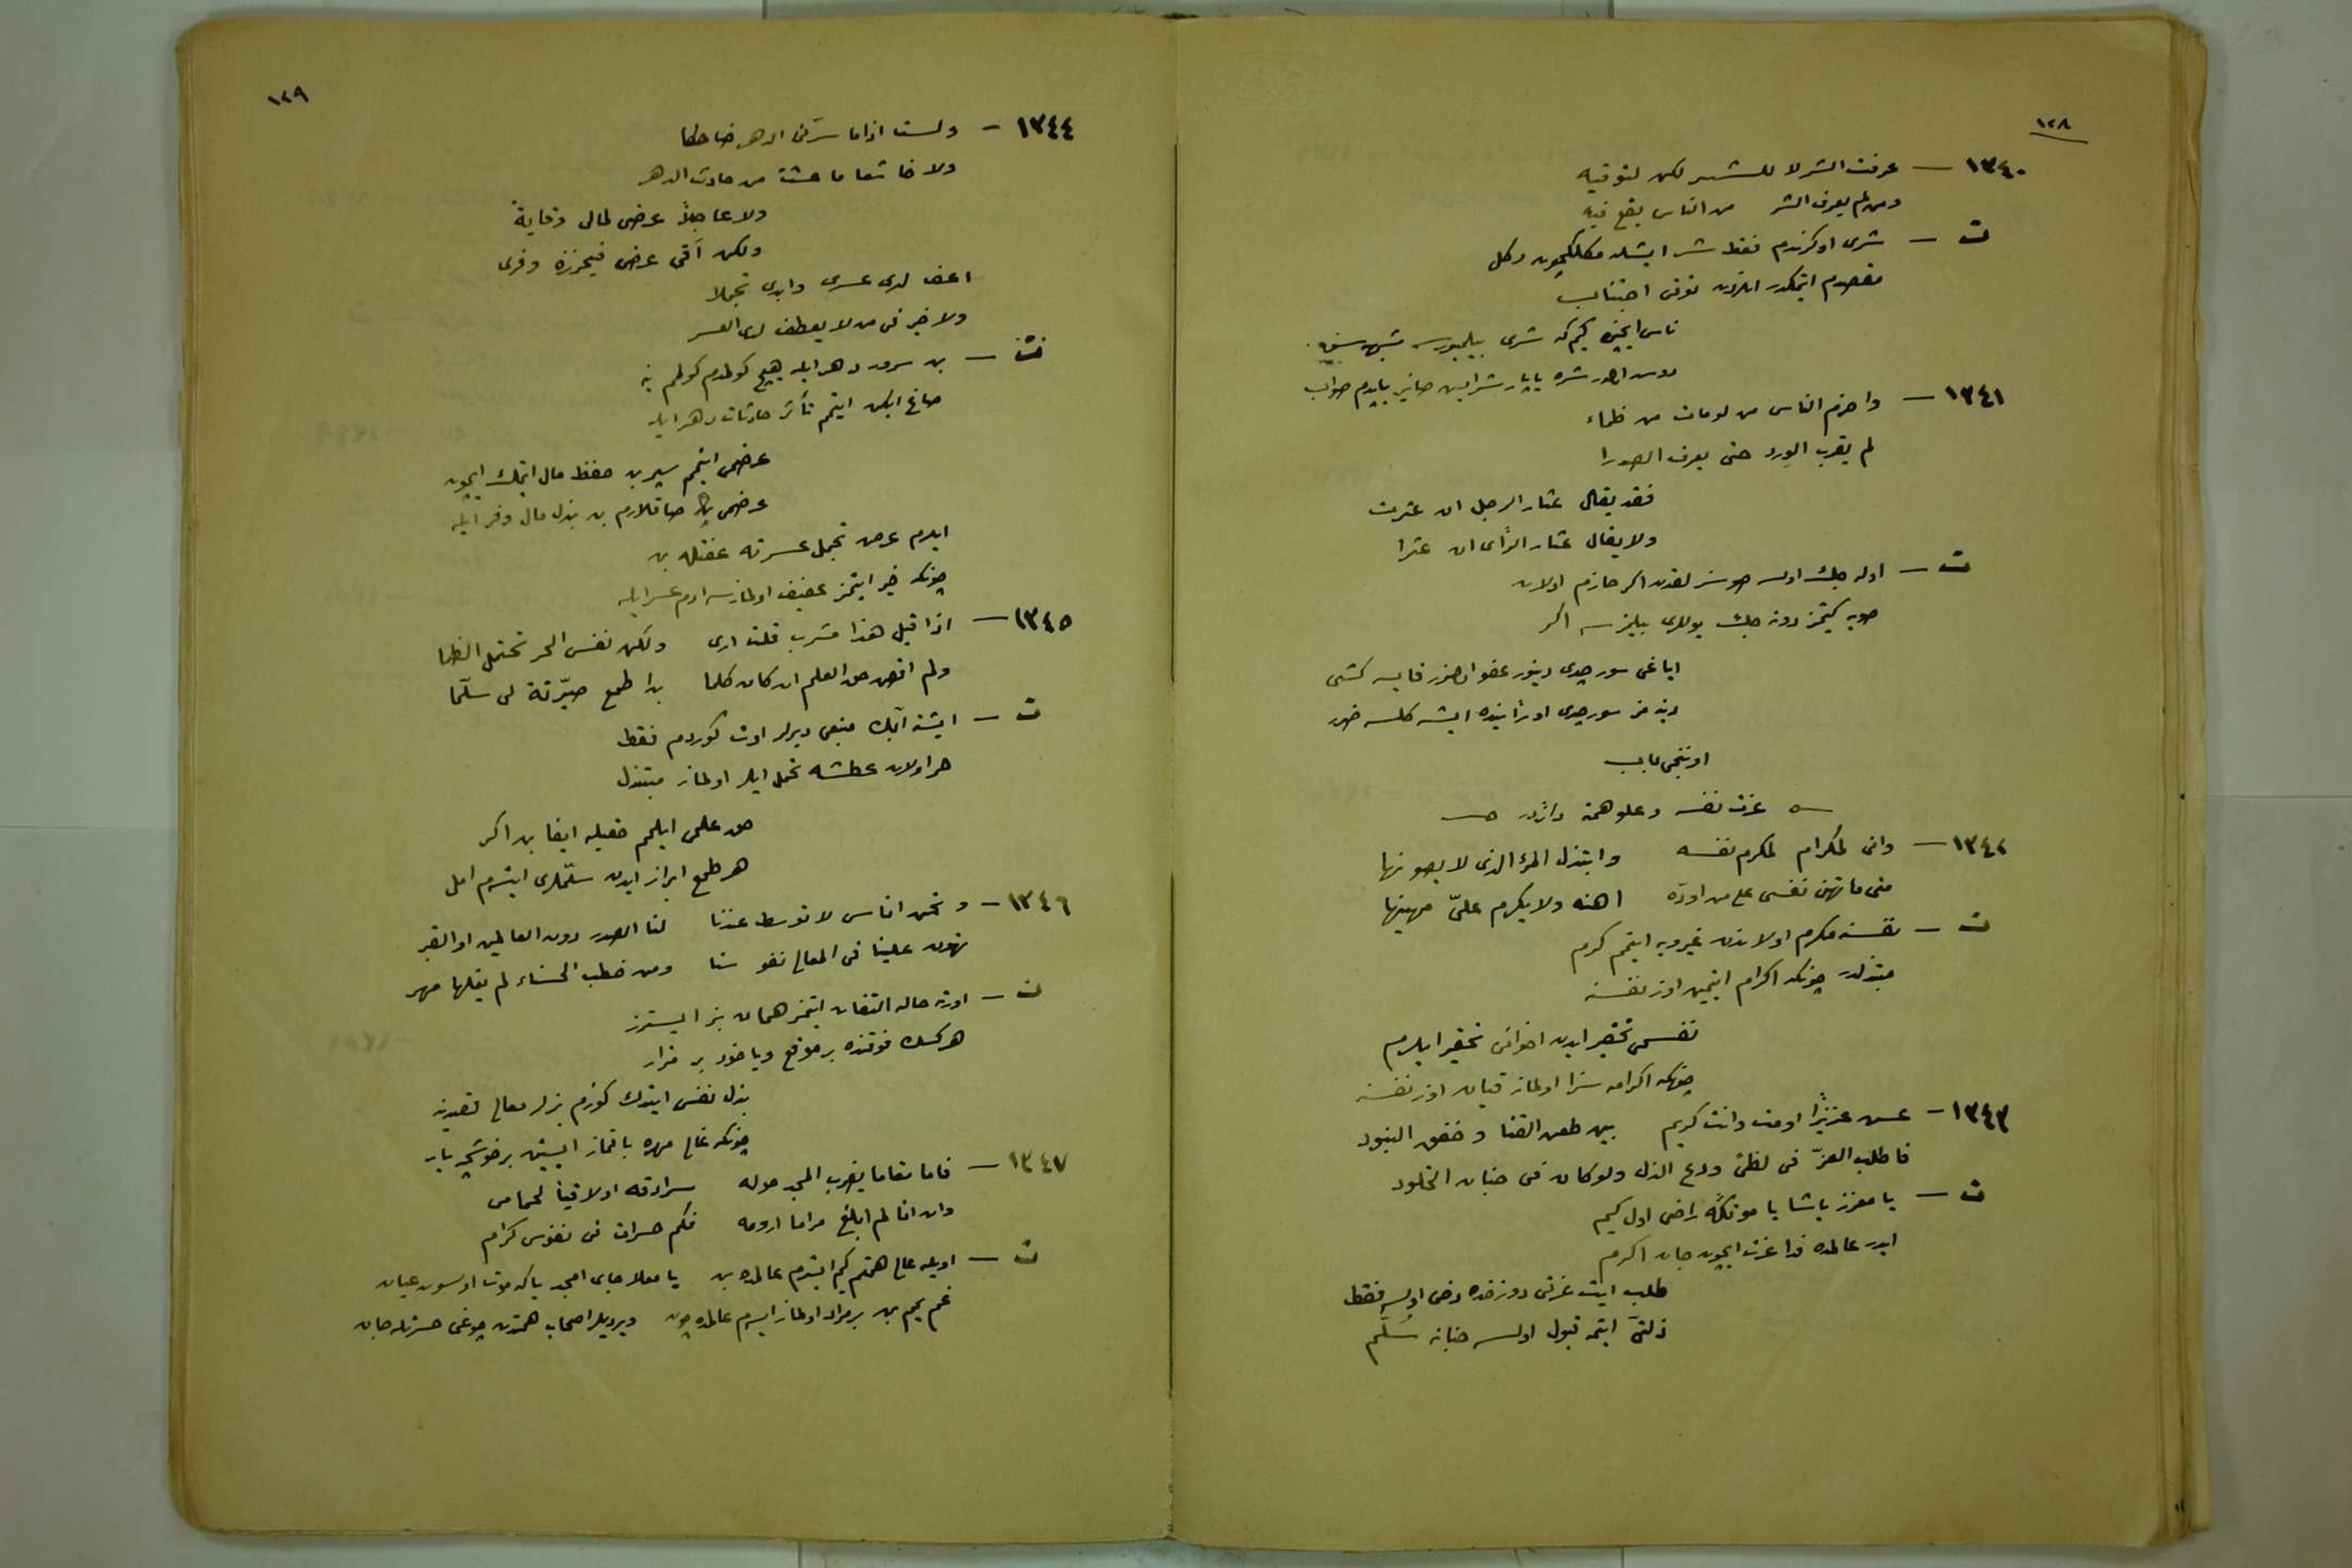 ١٢٨
١٣٤٠ — عرفت الشر لا للشر لكن لتوقيه
ومن لم يعرف الشر من الناس يقع فيه
ت — شرى اوكرندم فقط شر ايشلمكلكچون دكل
مقصدم ايتمكدر اندن توقى اجتناب
ناس ايچره كيم كه شرى بيلميورسه
١٣٤١ — واحزم الناس من لومات من ظماء
لم يقرب الورد حتى يعرف الصدرا
فقد يقال عثار الرجل ان عثرت
ولا يقال عثار الرأى ان عثرا
ت — اوله جك اولسه صوسزلقدن اكر حازم اولان
صويه كيتمز دونه جك يوللرى بيلمزسه اكر
اياغى سورچدى دينور عفو اولنور قايسه كشى
دينه مز سورچدى اورأينده ايشه كلسه ضرر
اوننجى باب
عزت نفسه وعلو همة دائر
١٣٤٢ — وانى لمكرام لمكرم نفسه وابتذل المرء الذى لا يصونها
متى ما تهن نفسى على من اوده اهنه ولا يكرم علىّ مهينها
ت — نفسنه مكرم اولاندن غيرويه ايتمم كرم
مبتذلدر چونكه اكرام ايتمين اوز نفسنه
نفسمى تحقير ايدن اخوانى تحقير ايلرم
چونكه اكرامه سزا اولماز قيان اوز نفسنه
١٣٤٣ — عش عزيزاً او مت وانت كريم بين طعن القنا وخفق البنود
فاطلب العزّ فى لظى ودع الذل ولو كان فى جنان الخلود
ت — يا معزز ياشا يا موتكه راضى اول كيم
ايدر عالمده فدا عزت ايچون جان اكرم
طلب ايت عزتى دوزخده دخى اولسه فقط
ذلتى ايتمه قبول اولسه جنانه سُلّم
١٢٩
١٣٤٤ — ولست اذا ما سرّنى الدهر ضاحكا
ولا خاشعا ما عشت من حادث الدهر
ولا جاعلاً عرضى لمالى وقاية
ولكن آقى عرضى فيحرزه وفرى
اعف لدى عسرى وابدى تجملا
ولا خير فى من لا يعطف لدى العسر
ت — بن سرور دهر ايله هيچ كولمدم كولمم ينه
صاغ ايكن ايتمم تأثر حادثات دهر ايله
عرضمى ايتمم سپر بن حفظ مال ايتمك ايچون
عرضمى صاقلارم بن بذل مال وفر ايله
ايدرم عرض تجمل عسرته عفتله بن
چونكه خير ايتمز عفيف اولمازسه ادم عسر ايله
١٣٤٥ — اذا قيل هذا مشرب قلت ارى ولكن نفس الحر تحتمل الظما
ولم اقض حق العلم ان كان كلما بدا طمع صيّرته لى سلّما
ت — ايشته آبك منبعى ديرلر اوت كوردم فقط
حر اولان عطشه تحمل ايلر اولماز مبتذل
حق علمى ايلمم حقيله ايفا بن اكر
هر طمع ابراز ايدن سلّملرى ايتسه م امل
١٣٤٦ — ونحن اناس لا توسط عندنا لنا الصدر دون العالمين او القبر
تهون علينا فى المعالى نفوسنا ومن خطب الحسناء لم يغلها مهر
ت — اورته حاله التفات ايتمز همان بز ايسترز
هركسك فوقنده بر موقع وياخود بر مزار
بذل نفس ايتدك كوزم بزلر معالى قصدينه
چونكه غالى مهره باقماز ايستين بر خوشچه يار
١٣٤٧ — فاما مقاما يضرب المجد حوله سرادقه اولاقيا لحمامى
وان انا لم ابلغ مراما ارومه فكم حسرات فى نفوس كرام
ت — اويله عالى همتم كيم ايسترم عالمده بن يا معلا جاى امجد ياكه موت اولسون عيان
غم يمم بن بر مراد اولماز ايسه م عالمده چون ويرديلر اصحاب همتدن چوغى حسرتله جان